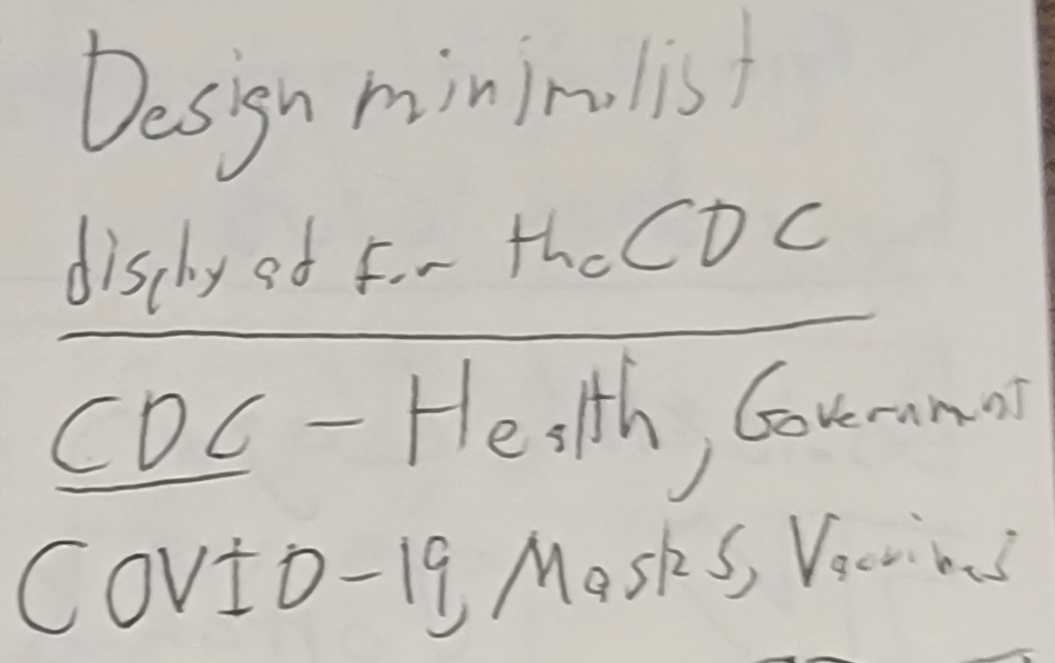 Design minimalist
display ad for the CDC
CDC - Health, Government
COVID-19, Masks, Vaccines